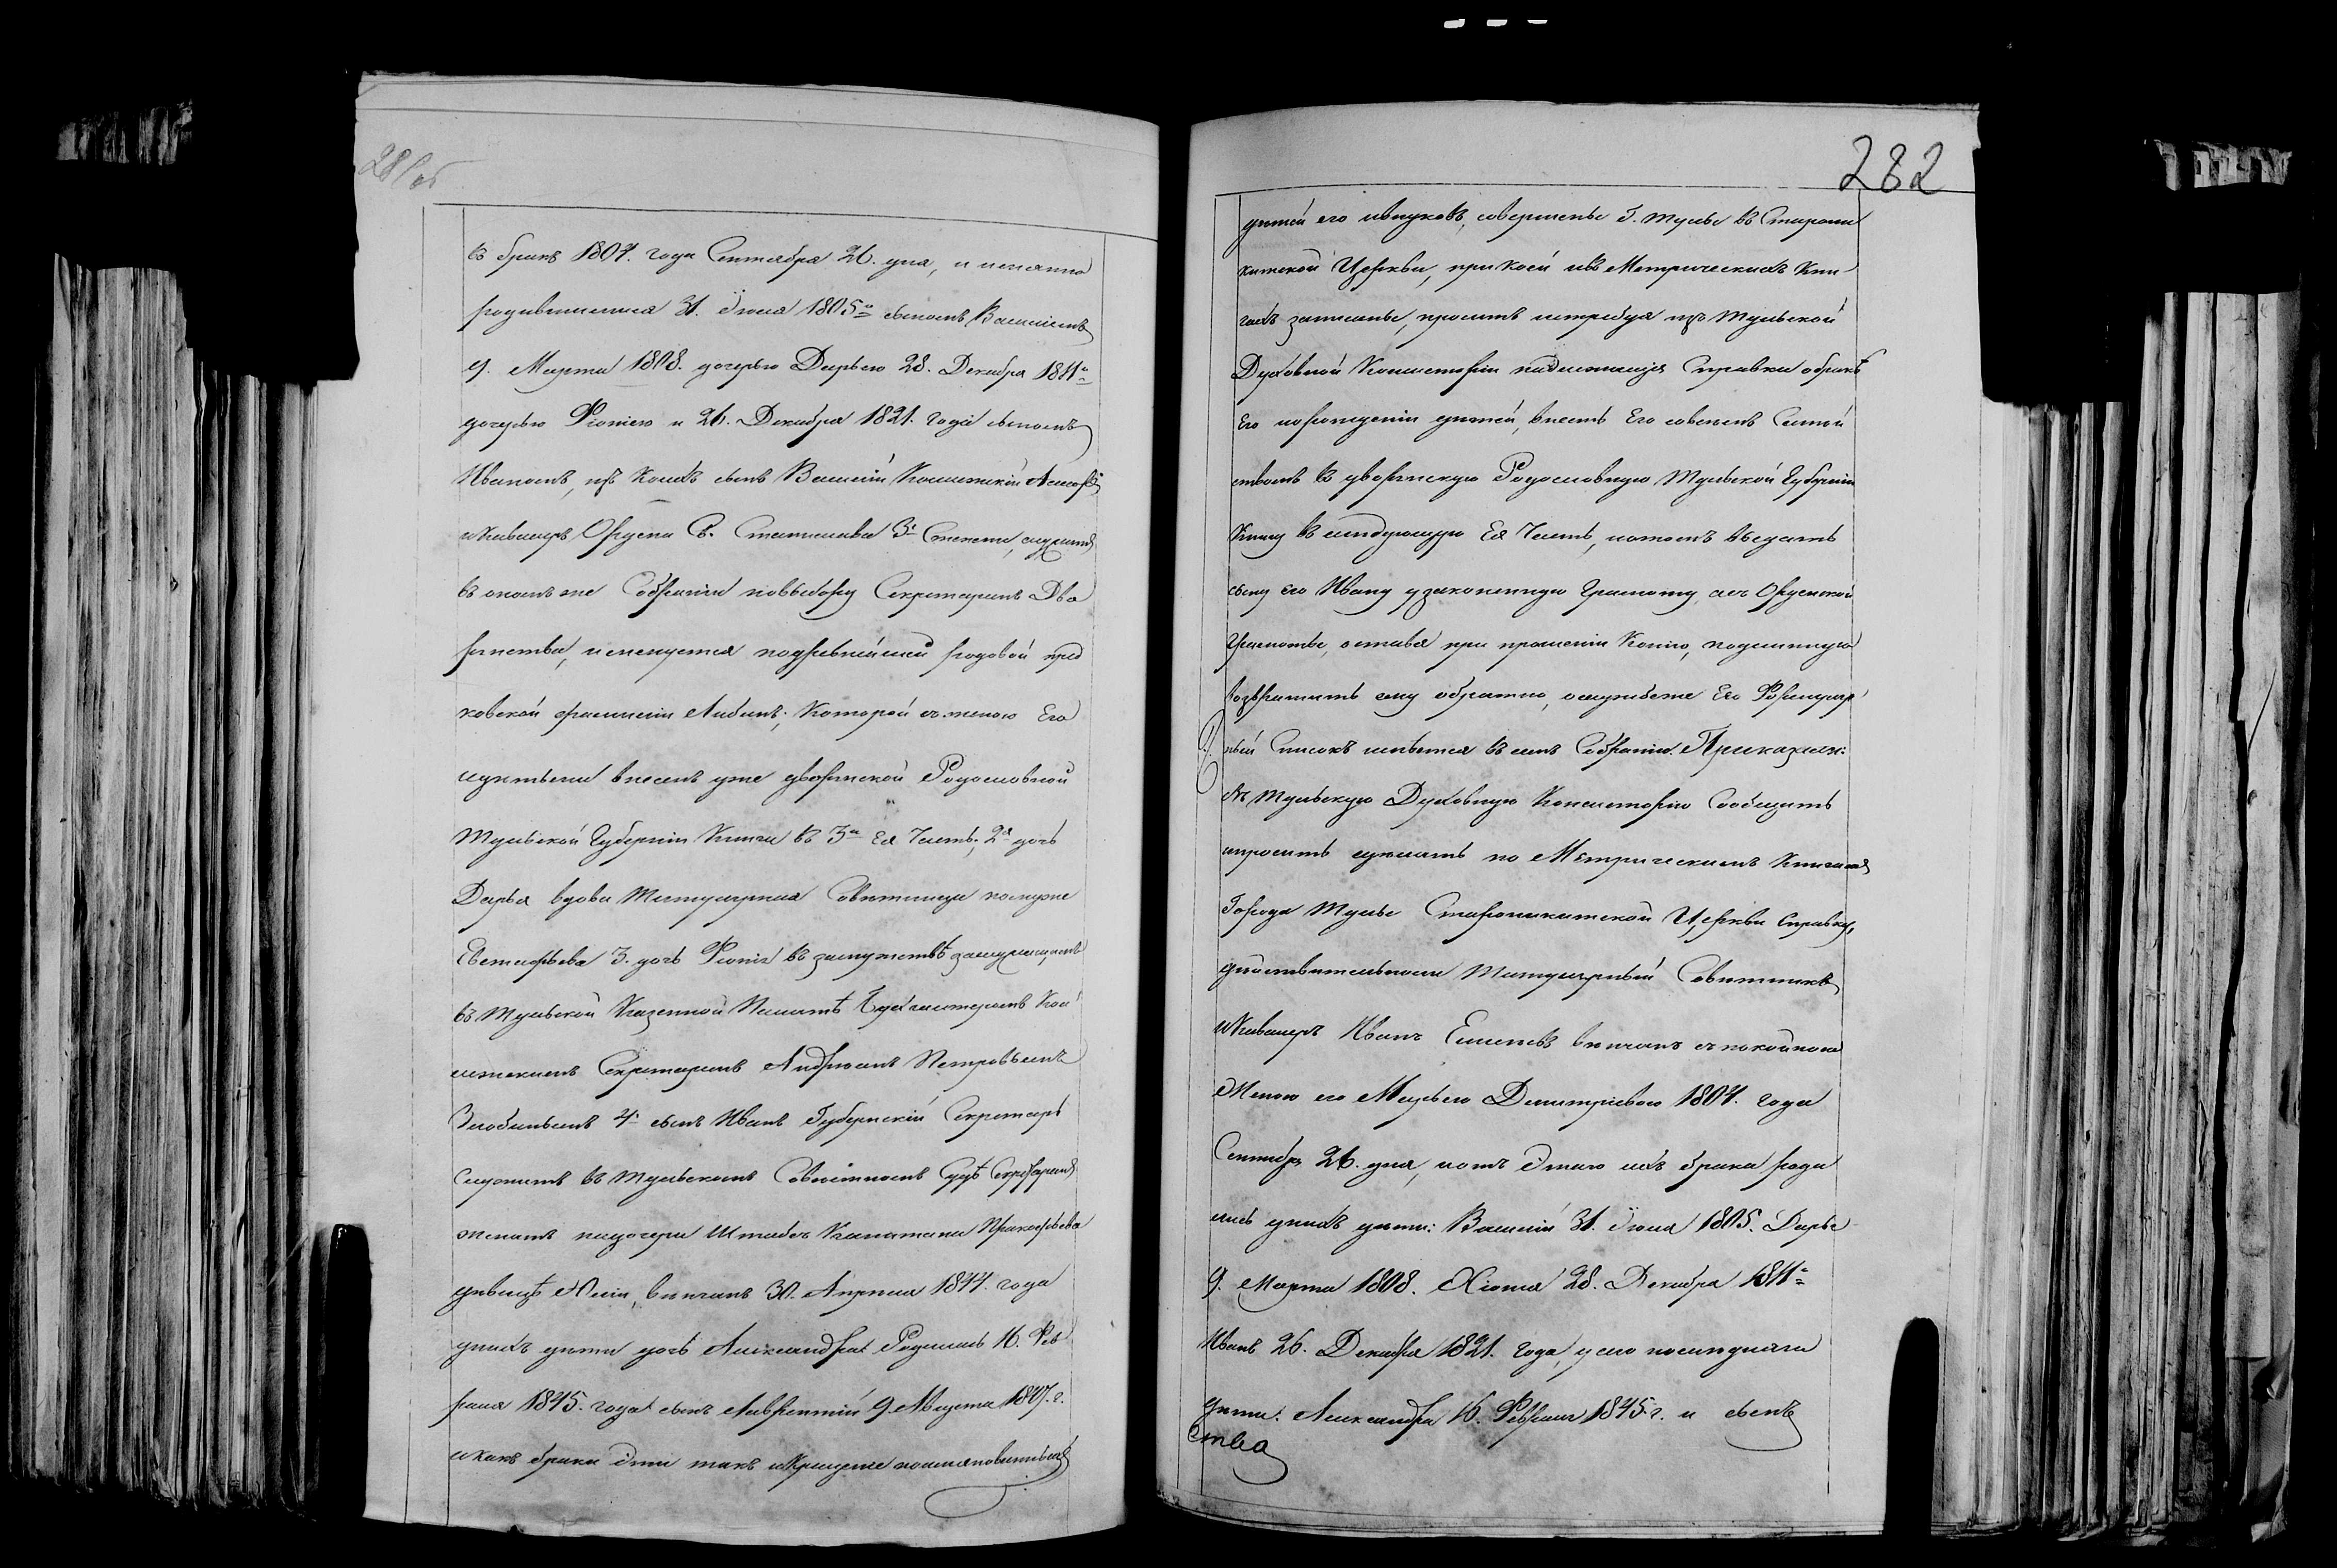 281об
въ бракъ 1804. года Сентября 26. дня, и именно
родившимися 31. Іюля 1805го сыномъ Васильемъ
9. Марта 1808. дочерью Дарьею 28. Декабря 1811го
дочерью Хіоніею и 26. Декабря 1821. года сыномъ
Иваномъ, изъ коихъ сынъ Василій Коллежскій Ассесоръ
и Кавалеръ Ордена Св. Станислава 3й Степени, служитъ
въ ономъ же Собраніи по выбору Секретаремъ Дво
рянства, именуется по древнѣйшей родовой пред
ковской фамиліи Лидинъ; которой съ женою Его
и дѣтьми внесенъ уже дворянской Родословной
Тульской Губерніи Книги въ 3ю Ея Часть; 2я дочь
Дарья вдова Титулярная Совѣтница по мужѣ
Евстафьева 3. дочь Хіонія въ замужствѣ за служащимъ
въ Тульской Казенной Палатѣ Бухгалтеромъ Кол
лежскимъ Секретаремъ Андреемъ Петровымъ
Злобинымъ 4й сынъ Иванъ Губернскій Секретарь
Служитъ въ Тульскомъ Совѣстномъ Судѣ Секретаремъ
женатъ на дочери Штабсъ Капитана Прокофьева
дѣвицѣ Юліи, вѣнчанъ 30. Апреля 1844. года
у нихъ дѣти дочь Александра Родилась 16. Фев
раля 1845. года сынъ Лаврентій 9. Августа 1847. г.
и какъ браки Эти такъ и Крещеніе поименованныхъ
282
дѣтей его и внуковъ, совершены Г. Тулы въ Старони
китской Церкви, при коей и въ Метрическихъ Кни
гахъ записаны, проситъ истребуя изъ Тульской
Духовной Консисторіи надлежащія Справки о бракѣ
Его и о рожденіи дѣтей, внесть Его со всѣмъ Семей
ствомъ въ дворянскую Родословную Тульской Губерніи
Книгу въ слѣдующую Ея Часть, и о томъ выдать
сыну его Ивану узаконенную Грамоту, а съ Орденской
Грамоты, оставя при прошеніи Копію, подлинную
возвратить ему обратно, о службѣ же Его Формуляр
ный Списокъ имѣется въ семъ Собраніи. Приказали:
Въ Тульскую Духовную Консисторію Сообщить
и просить сделать по Метрическимъ Книгамъ
Города Тулы Староникитской Церкви Справку,
дѣйствительно ли Титулярный Совѣтникъ
и Кавалеръ Иванъ вѣнчанъ съ покойною
Женою его Марьею Дмитріевою 1804. года
Сентября 26. дня, и отъ Этаго ихъ брака роди
лись у нихъ дѣти: Василій 31. Іюля 1805. Дарья
9. Марта 1808. Хіонія 28. Декабря 1811го
Иванъ 26. Декабря 1821. года, у сего послѣдняго
дѣти. Александра 16. Февраля 1845. г. и сынъ
ства